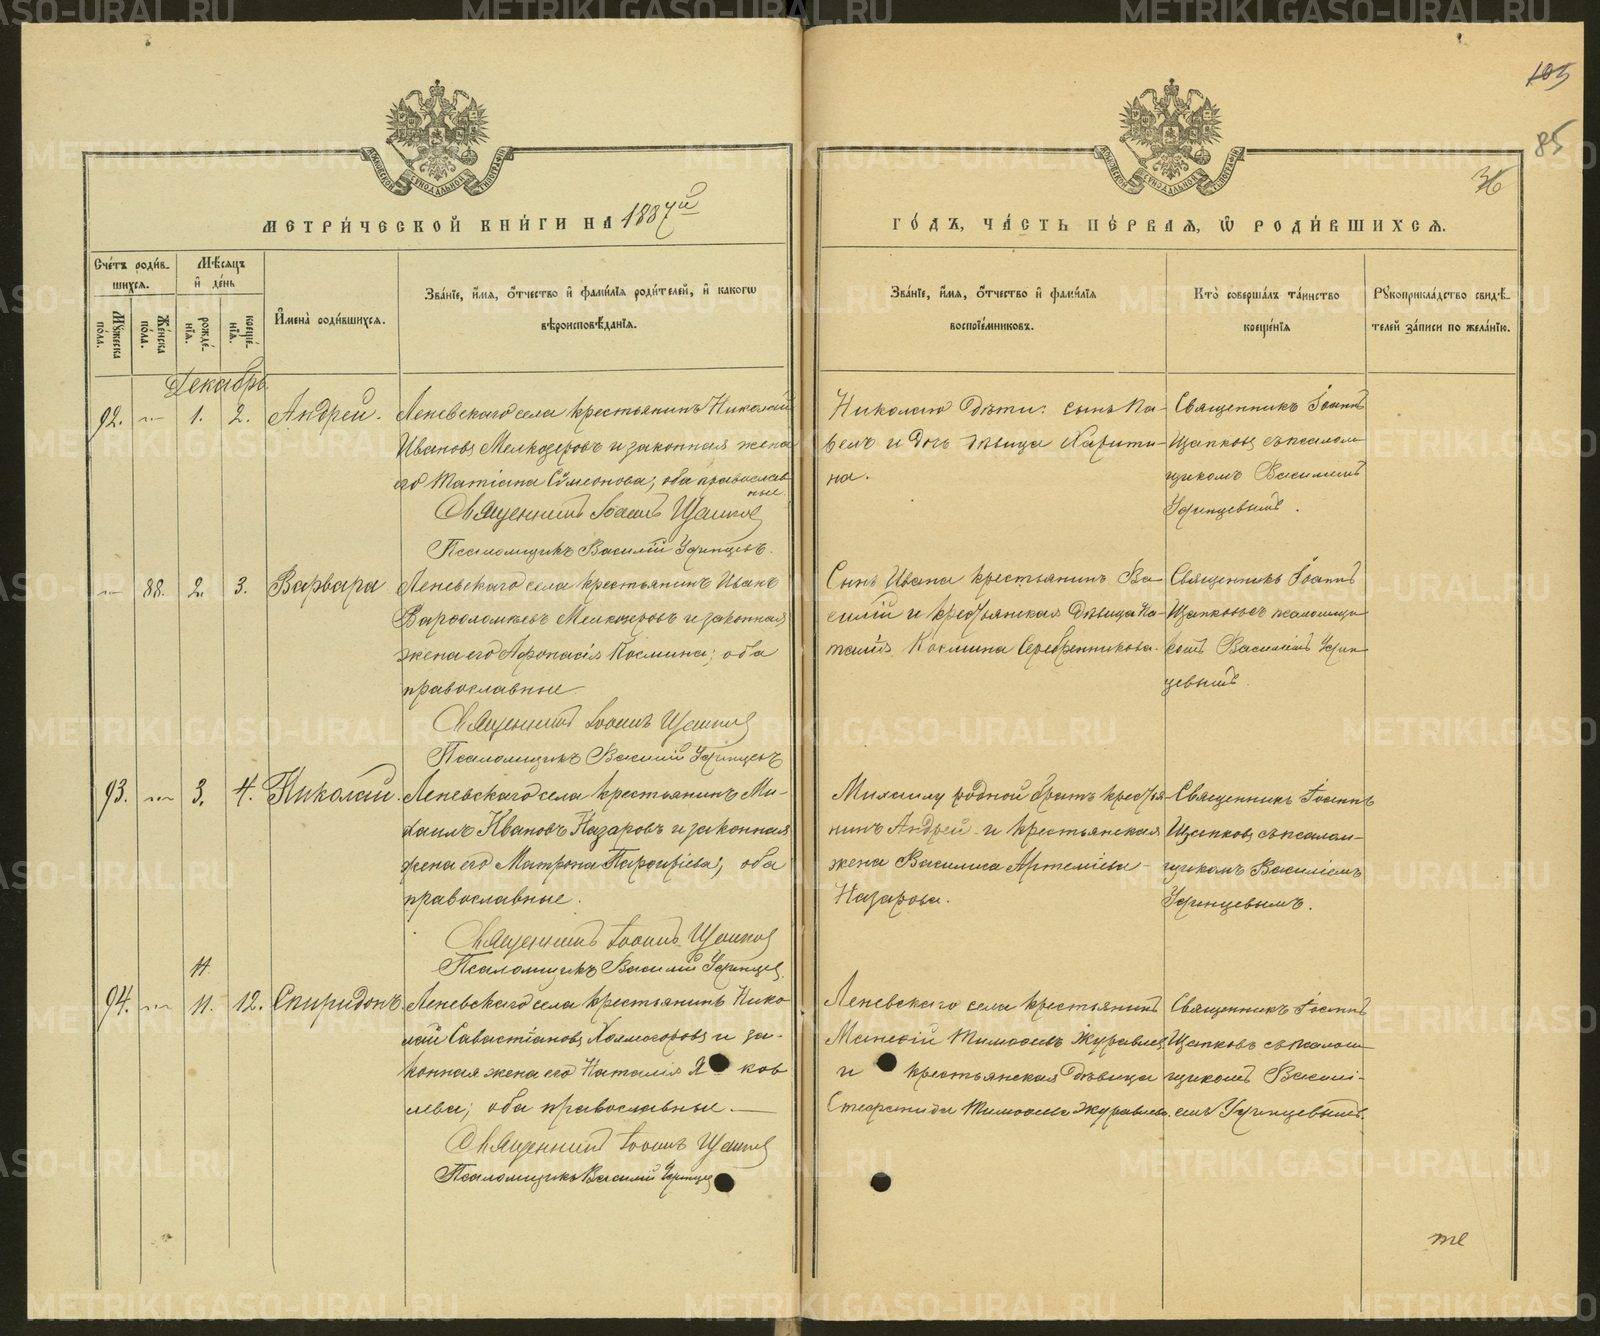 103
85
36
МОСКОВСКОЙ СѴНОДАЛЬНОЙ ТИПОГРАФІИ
МОСКОВСКОЙ СѴНОДАЛЬНОЙ ТИПОГРАФІИ
МЕТРИ́ЧЕСКОЙ КНИ́ГИ НА 1887й
ГО́ДЪ, ЧА́СТЬ ПЕ́РВАѦ, Ѡ РОДИ́ВШИХСѦ.
Сче́тъ роди́в-
шихсѧ.
Мꙋ́жеска по́ла.
Же́нска по́ла.
Мѣ́сѧцъ
и҆ де́нь
рожде́нїѧ.
креще́нїѧ.
И҆мена̀ роди́вшихсѧ.
Зва́нїе, и҆́мѧ, ѻ҆́тчество и҆ фами́лїѧ роди́телей, и҆ како́гѡ
вѣроисповѣ́данїѧ.
Зва́нїе, и҆́мѧ, ѻ҆́тчество и҆ фами́лїѧ
воспрїе́мниковъ.
Кто̀ соверша́лъ та́инство
креще́нїѧ
Рꙋкоприкла́дство свидѣ́-
телей за́писи по жела́нїю.
Декабрь
92. — 1. 2. Андрей. Леневскаго села крестьянинъ Николай
Ивановъ Мелкозеровъ и законная жена
его Татіана Сѵмеонова; оба православ
ные.
Священникъ Іоаннъ Щапковъ
Псаломщикъ Василій Уфинцевъ.
Николаю дѣти: сынъ Па-
велъ и дочь дѣвица Харити-
на.
Священникъ Іоаннъ
Щапковъ съ псалом-
щикомъ Василіемъ
Уфинцевымъ.
— 88. 2. 3. Варвара Леневскаго села крестьянинъ Иванъ
Варѳоломѣевъ Мелкозеровъ и законная
жена его Аѳонасія Космина; оба
православные.
Священникъ Іоаннъ Щапковъ
Псаломщикъ Василій Уфинцевъ
Сынъ Ивана крестьянинъ Ва-
силій и крестьянская дѣвица На-
талія Космина Серебренникова.
Священникъ Іоаннъ
Щапковъ съ псаломщи-
комъ Василіемъ Уфин-
цевымъ.
93. — 3. 4. Николай. Леневскаго села крестьянинъ Ми-
хаилъ Ивановъ Назаровъ и законная
жена его Матрона Парѳирiева; оба
православные.
Священникъ Іоаннъ Щапковъ
Псаломщикъ Василій Уфинцевъ.
Михаилу родной братъ крестья-
нинъ Андрей и крестьянская
жена Василиса Артеміева
Назарова.
Священникъ Іоаннъ
Щапковъ съ псалом-
щикомъ Василіемъ
Уфинцевымъ.
11.
94. — 11. 12. Спиридонъ. Леневскаго села крестьянинъ Нико-
лай Савастіановъ Холмогоровъ и за-
конная жена его Наталія Я ков
лева; оба православные.
Священникъ Іоаннъ Щапковъ
Псаломщикъ Василій Уфинцевъ
Леневскаго села крестьянинъ
Тимоѳеевъ Журавлевъ
и крестьянская дѣвица
Тимоѳеева Журавлева.
Священникъ Іоаннъ
Щапковъ съ псалом-
щикомъ Василі-
емъ Уфинцевымъ.
те
METRIKI.GASO-URAL.RU